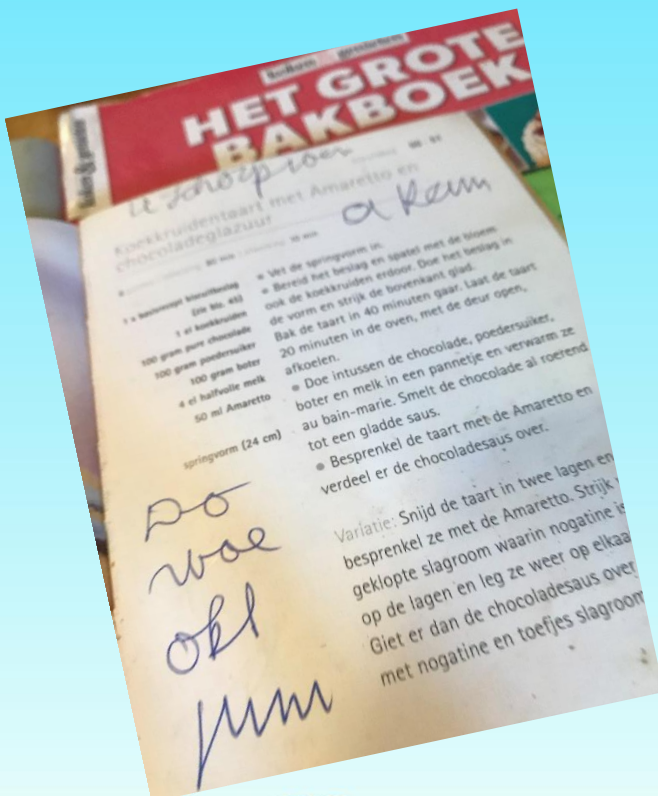 HET GROTE
BAKBOEK
Koekkruidentaart met Amaretto en
chocoladeglazuur
1 x basisrecept biscuitbeslag
(zie blz. 45)
1 el koekkruiden
100 gram pure chocolade
100 gram poedersuiker
100 gram boter
4 el halfvolle melk
50 ml Amaretto
springvorm (24 cm)
• Vet de springvorm in.
• Bereid het beslag en spatel met de bloem
ook de koekkruiden erdoor. Doe het beslag in
de vorm en strijk de bovenkant glad.
Bak de taart in 40 minuten gaar. Laat de taart
20 minuten in de oven, met de deur open,
afkoelen.
• Doe intussen de chocolade, poedersuiker,
boter en melk in een pannetje en verwarm ze
au bain-marie. Smelt de chocolade al roerend
tot een gladde saus.
• Besprenkel de taart met de Amaretto en
verdeel er de chocoladesaus over.
Variatie: Snijd de taart in twee lagen en
besprenkel ze met de Amaretto. Strijk
geklopte slagroom waarin nogatine is
op de lagen en leg ze weer op elkaa
Giet er dan de chocoladesaus over
met nogatine en toefjes slagroom
Do
woe
okt